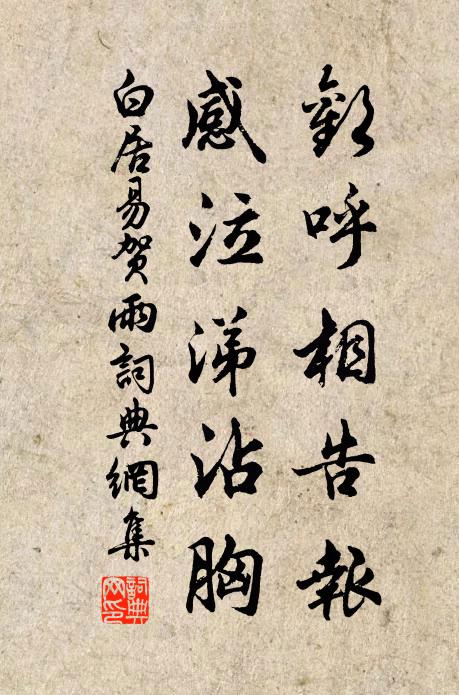 歡呼相告報
感泣涕沾胸
白居易賀雨詞典網集
詞典网印